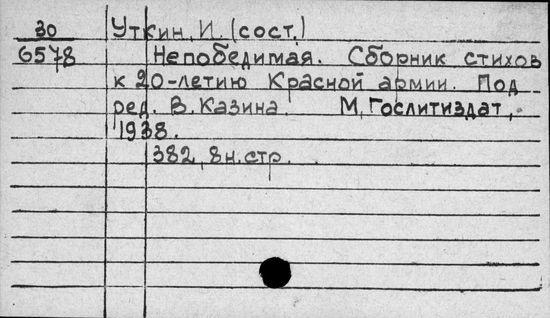 30 Уткин, И. (сост.)
6578 Непобедимая. Сборник стихов
к 20-летию Красной армии. Под
ред. В. Казина. М, Гослитиздат,
1938.
382, 8н.стр.